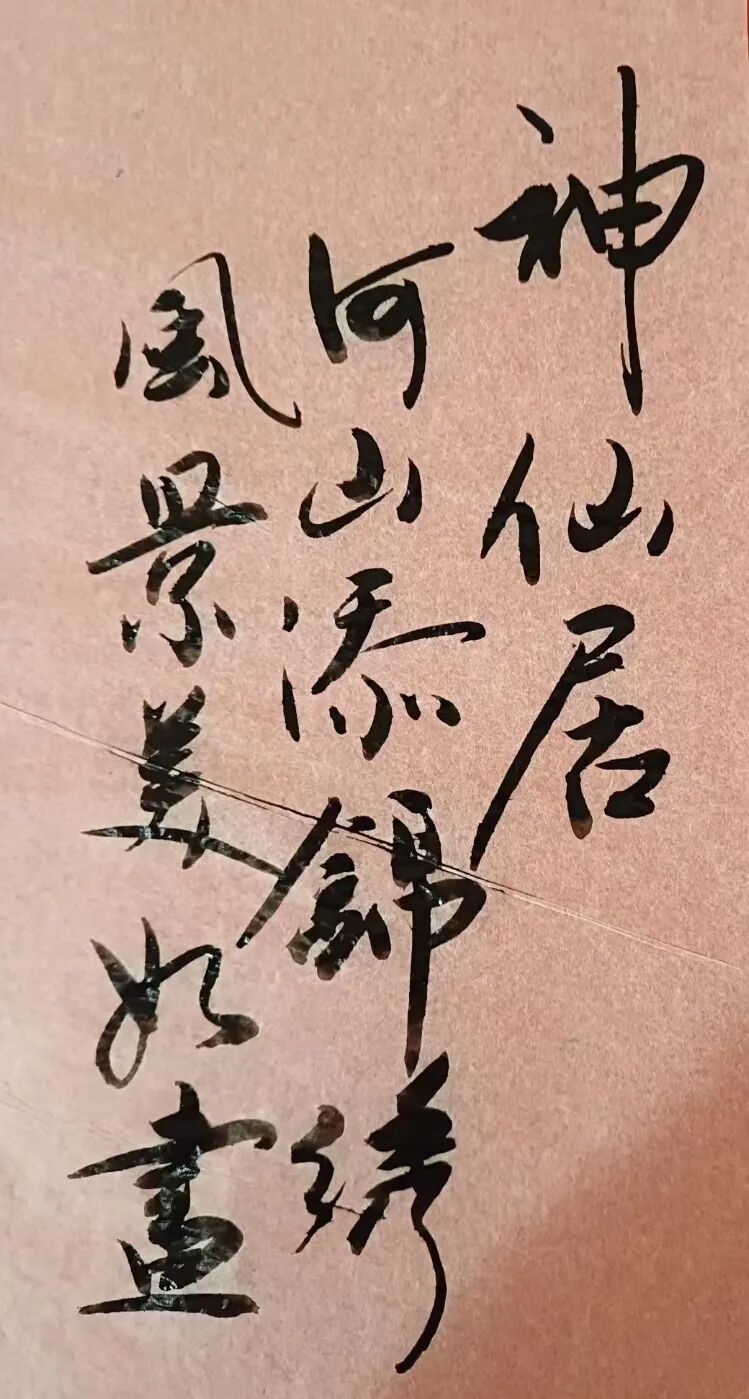 神仙居
河山添錦绣
風景美如畫